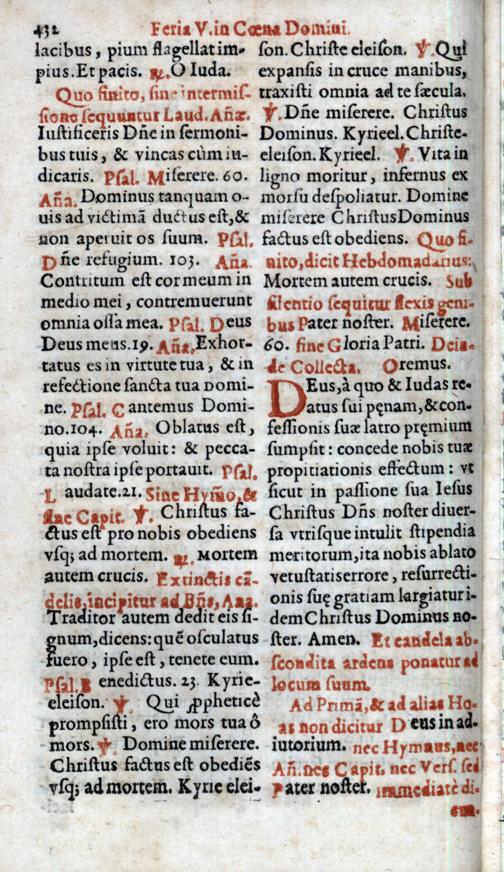 432 Feria V. in Cœna Domini.
lacibus, pium flagellat im-
pius. Et pacis. ℟. O Iuda.
Quo finito, sine intermis-
sione sequuntur Laud. Añæ.
Iustificeris Dñe in sermoni-
bus tuis, & vincas cùm iu-
dicaris. Psal. Miserere. 60.
Aña. Dominus tanquam o-
uis ad victimã ductus est, &
non aperuit os suum. Psal.
Dñe refugium. 103. Aña.
Contritum est cor meum in
medio mei, contremuerunt
omnia ossa mea. Psal. Deus
Deus meus. 19. Aña. Exhor-
tatus es in virtute tua, & in
refectione sancta tua Domi-
ne. Psal. Cantemus Domi-
no. 104. Aña. Oblatus est,
quia ipse voluit: & pecca-
ta nostra ipse portauit. Psal.
Laudate. 21. Sine Hym̃o, &
sine Capit. ℣. Christus fa-
ctus est pro nobis obediens
vsq; ad mortem. ℟. Mortem
autem crucis. Extinctis cã-
delis, incipitur ad Bñs, Aña.
Traditor autem dedit eis si-
gnum, dicens: quẽ osculatus
fuero, ipse est, tenete eum.
Psal. Benedictus. 23. Kyrie-
eleison. ℣. Qui ꝓpheticè
prompsisti, ero mors tua ô
mors. ℣. Domine miserere.
Christus factus est obediẽs
vsq; ad mortem. Kyrie elei-
son. Christe eleison. ℣. Qui
expansis in cruce manibus,
traxisti omnia ad te sæcula.
℣. Dñe miserere. Christus
Dominus. Kyrieel. Christe-
eleison. Kyrieel. ℣. Vita in
ligno moritur, infernus ex
morsu despoliatur. Domine
miserere Christus Dominus
factus est obediens. Quo fi-
nito, dicit Hebdomadarius:
Mortem autem crucis. Sub
silentio sequitur flexis geni-
bus Pater noster. Miserere.
60. sine Gloria Patri. Dein-
de Collecta. Oremus.
DEus, à quo & Iudas re-
atus sui pęnam, & con-
fessionis suæ latro pręmium
sumpsit: concede nobis tuæ
propitiationis effectum: vt
sicut in passione sua Iesus
Christus Dñs noster diuer-
sa vtrisque intulit stipendia
meritorum, ita nobis ablato
vetustatis errore, resurrecti-
onis suę gratiam largiatur i-
dem Christus Dominus no-
ster. Amen. Et candela ab-
scondita ardens ponatur ad
locum suum.
Ad Primã, & ad alias Ho-
as non dicitur Deus in ad-
iutorium. nec Hymnus, nec
Añ. nec Capit. nec Vers. sed
Pater noster. immediatè di-